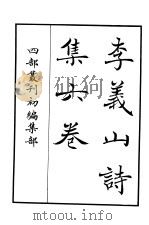 李義山詩
集六卷
四部叢刊初編集部
mtoou.info